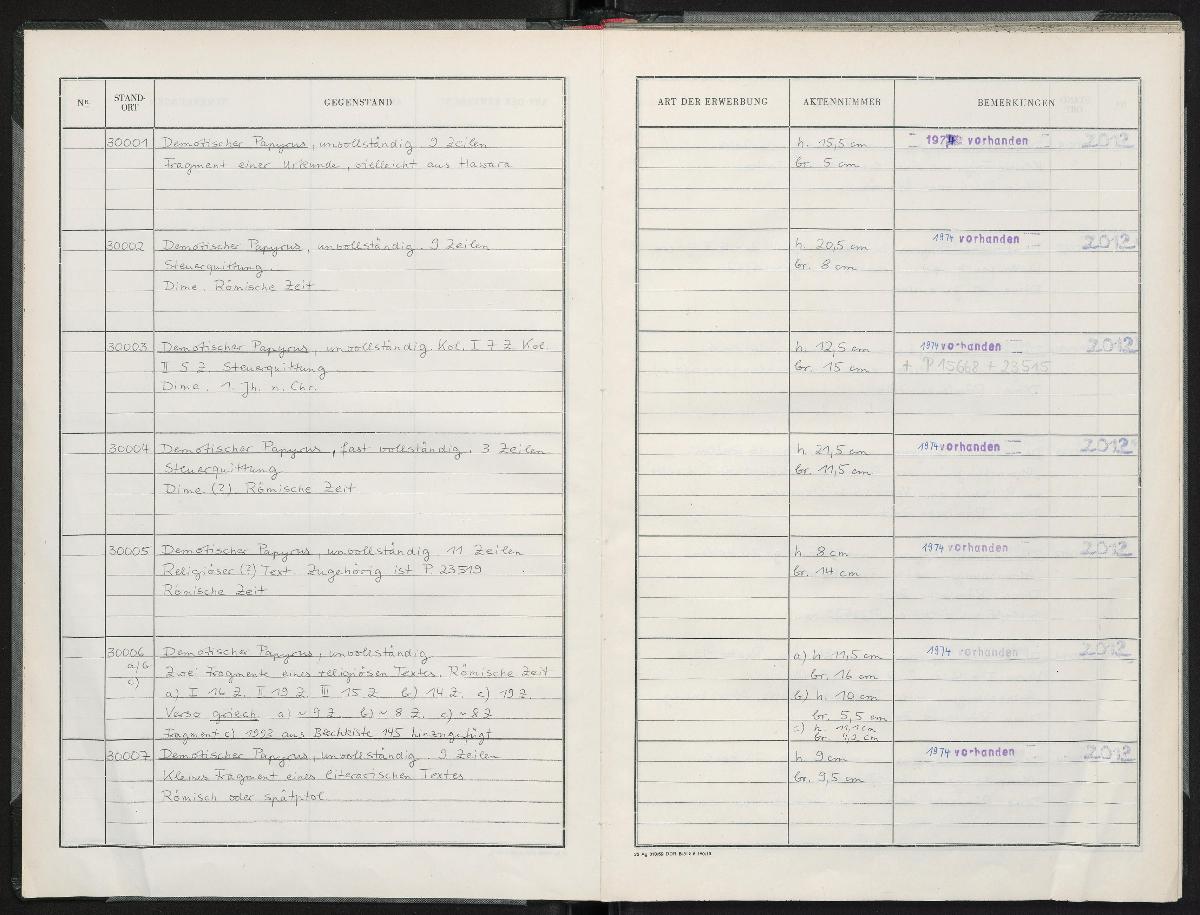 Nr. STAND-ORT GEGENSTAND
30001 Demotischer Papyrus, unvollständig. 9 Zeilen
Fragment einer Urkunde, vielleicht aus Hawara
30002 Demotischer Papyrus, unvollständig. 9 Zeilen
Steuerquittung.
Dime. Römische Zeit
30003 Demotischer Papyrus, unvollständig. Kol. I 7 Z Kol.
II 5 Z. Steuerquittung
Dime. 1. Jh. n. Chr.
30004 Demotischer Papyrus, fast vollständig. 3 Zeilen
Steuerquittung
Dime (?) Römische Zeit
30005 Demotischer Papyrus, unvollständig 11 Zeilen
Religiöser (?) Text. Zugehörig ist P. 23519
Römische Zeit
30006 Demotischer Papyrus, unvollständig
a/b Zwei Fragmente eines religiösen Textes. Römische Zeit
c) a) I 16 Z. II 19 Z. III 15 Z b) 14 Z. c) 19 Z.
Verso griech. a) ~ 9 Z. b) ~ 8 Z. c) ~ 8 Z
Fragment c) 1992 aus Blechkiste 145 hinzugefügt
30007 Demotischer Papyrus, unvollständig. 9 Zeilen
Kleines Fragment eines literarischen Textes
Römisch oder spätptol.
ART DER ERWERBUNG AKTENNUMMER BEMERKUNGEN
h. 15,5 cm 1974 vorhanden 2012
br. 5 cm
h. 20,5 cm 1974 vorhanden 2012
br. 8 cm
h. 12,5 cm 1974 vorhanden 2012
br. 15 cm + P 15668 + 23515
h. 21,5 cm 1974 vorhanden 2012
br. 11,5 cm
h 8 cm 1974 vorhanden 2012
br. 14 cm
a) h 11,5 cm 1974 vorhanden 2012
br. 16 cm
b) h. 10 cm
br. 5,5 cm
c) h. 11,1 cm
br. 9,2 cm
h 9 cm 1974 vorhanden 2012
br. 9,5 cm